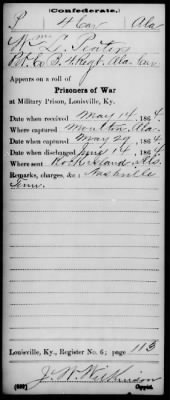 (Confederate.)
P 4 Cav Ala
Wm L.
Pvt Co. B. 4 Regt. Ala. Cav.
Appears on a roll of
Prisoners of War
at Military Prison, Louisville, Ky.
Date when received May 14, 186 4.
Where captured Moulton, Ala.
Date when captured May 29, 186 4
Date when discharged June 14, 186 4
Where sent Rock Island, Ills.
Remarks, charges, &c: Nashville
Tenn.
Louisville, Ky., Register No. 6; page 113
J. W. Wilkinson
Copyist.